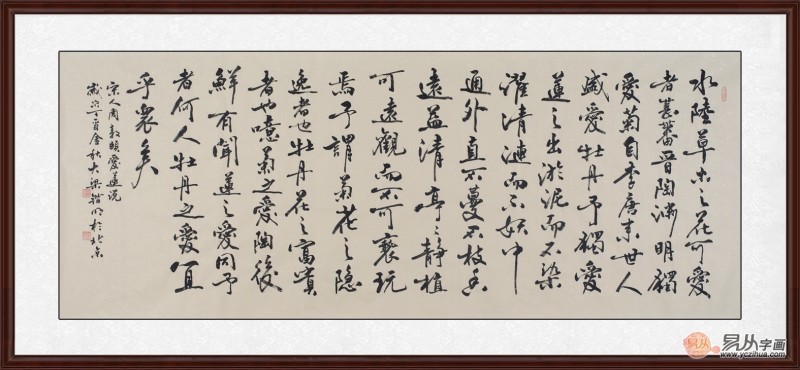 水陸草木之花可愛
者甚蕃晉陶淵明獨
愛菊自李唐来世人
盛愛牡丹予獨愛
蓮之出淤泥而不染
濯清漣而不妖中
通外直不蔓不枝香
遠益清亭〻静植
可遠觀而不可褻玩
焉予謂菊花之隐
逸者也牡丹花之富貴
者也噫菊之愛陶後
鮮有聞蓮之愛同予
者何人牡丹之愛宜
乎衆矣
宋人周敦頤愛蓮说
歲次丁酉金秋大梁明於北京
易从字画
www.yczihua.com